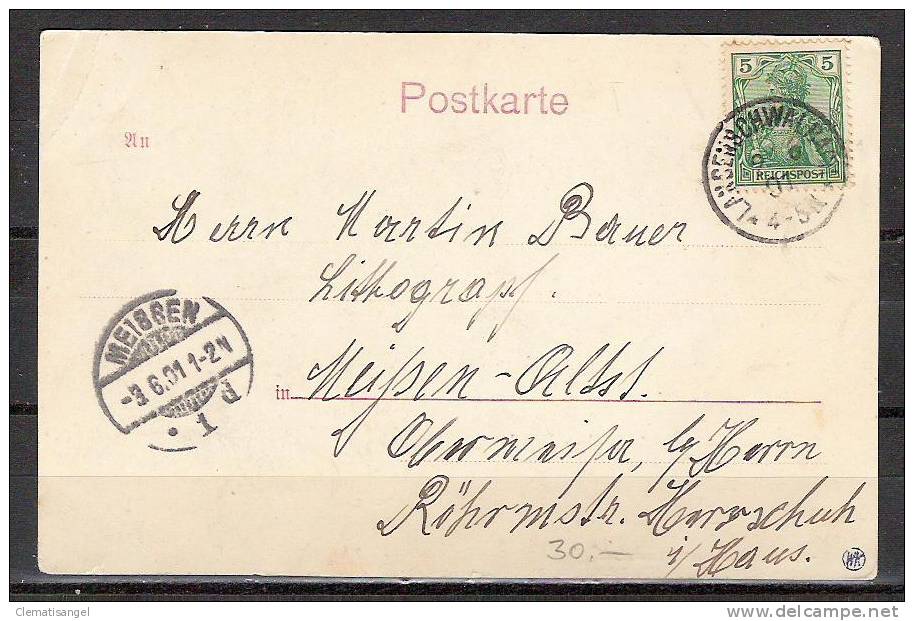 Postkarte
5 5
REICHSPOST
LANGENSCHWALBACH
01
4-5N
An
Herrn Martin Bauer
Lithograph.
MEISSEN
-3.6.01.1-2N
in Meißen-Altst.
Obermeisa, b/Herrn
Röhrmstr. Herrschuh
i/Haus.
30.-
Clematisangel
delcampe.net